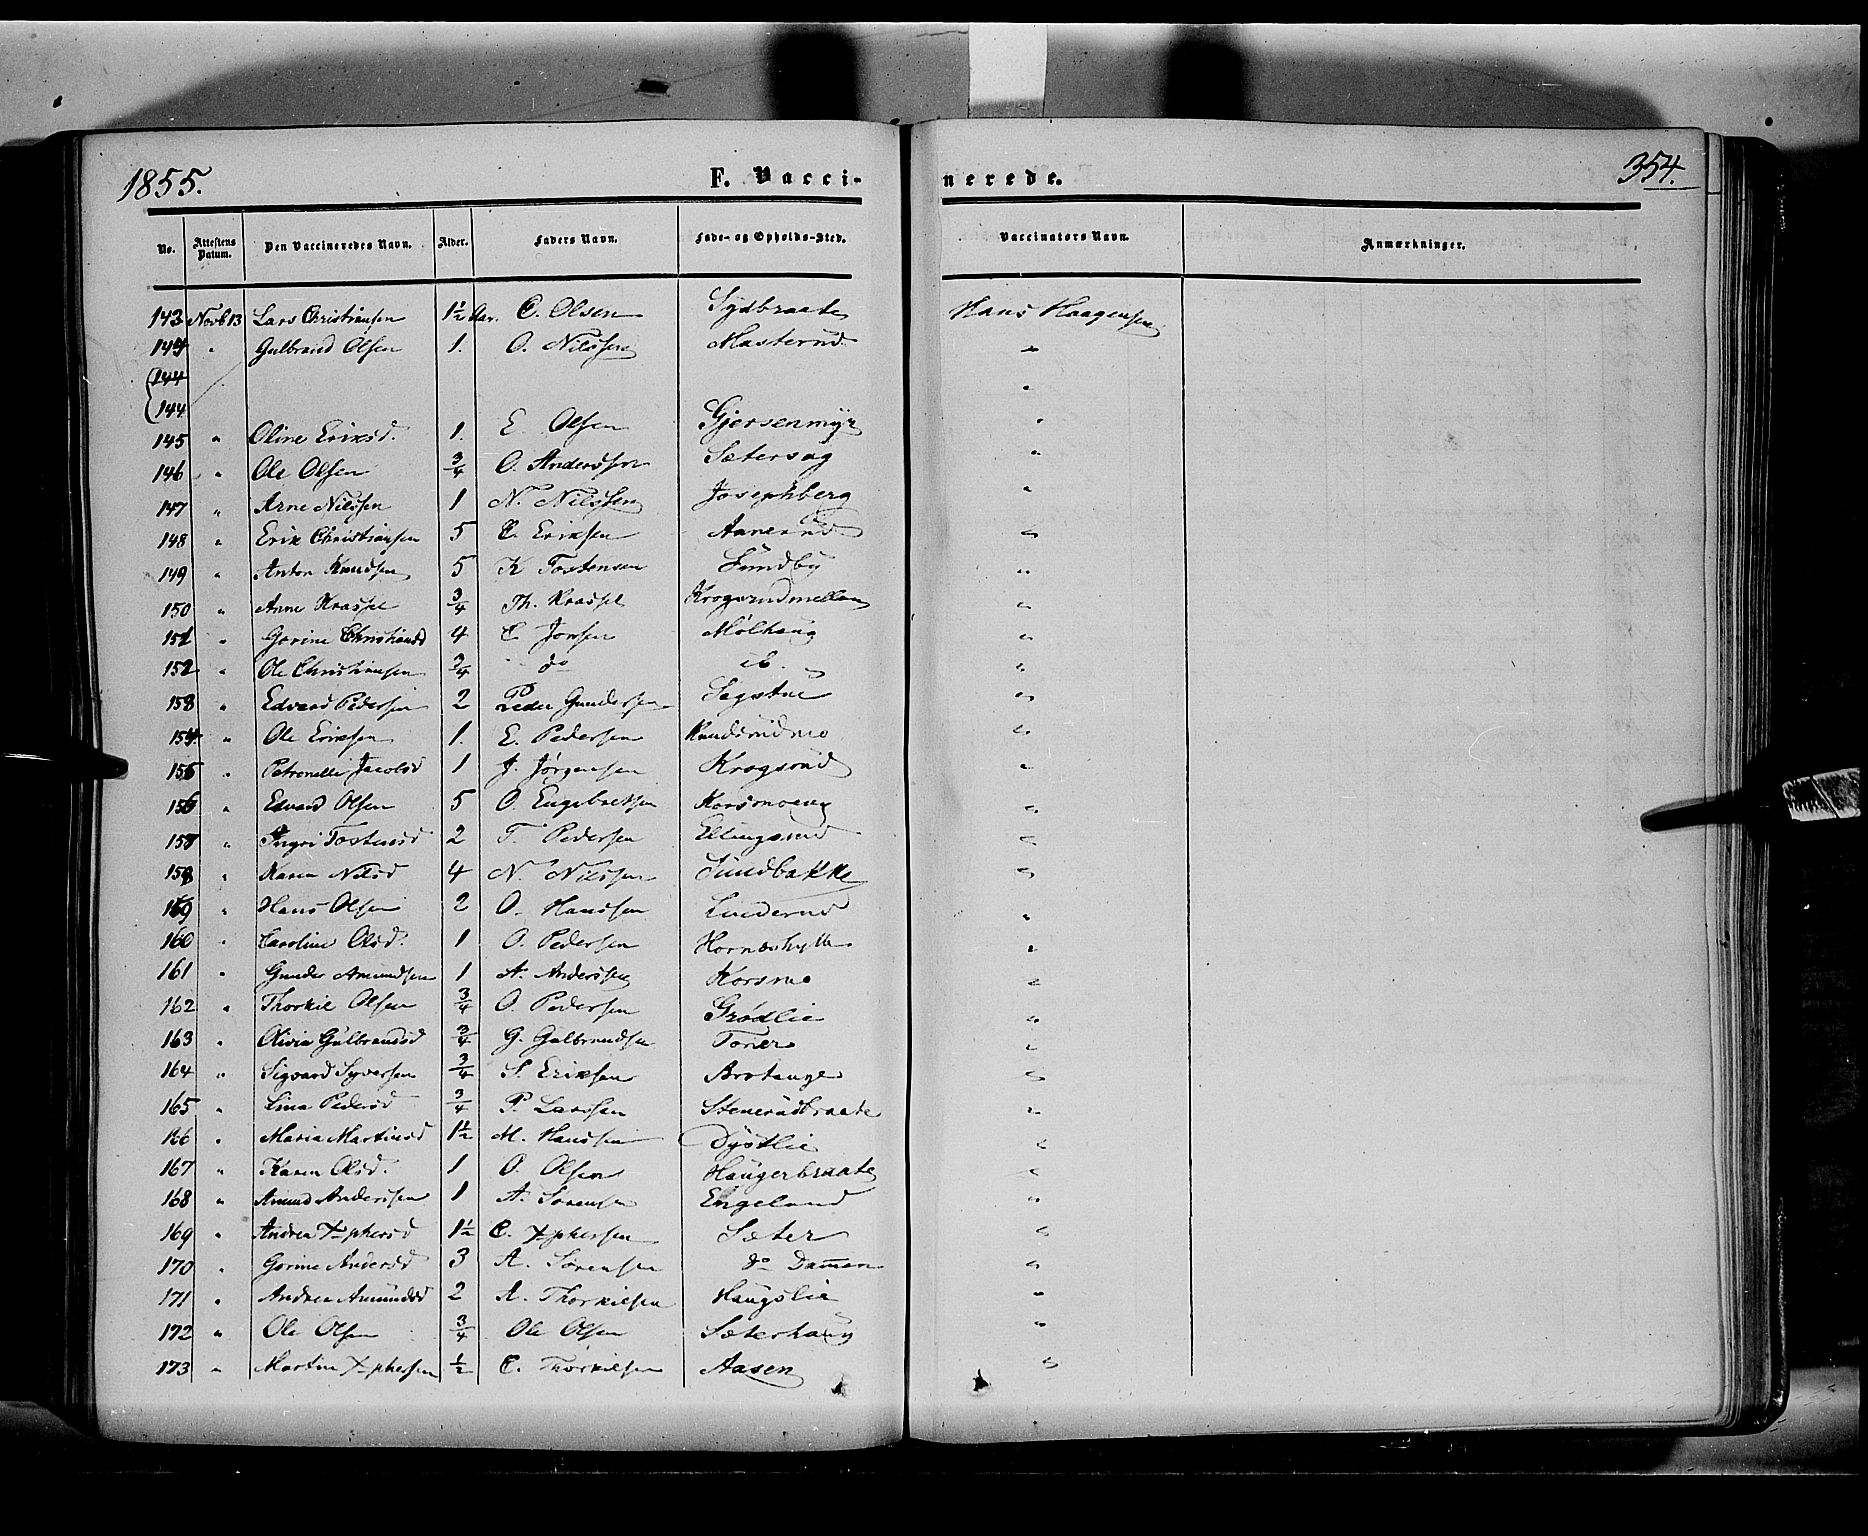 1855. F. Vaccinerede. 354.
No. Attestens Datum. Den Vaccineredes Navn. Alder. Faders Navn. Føde- og Opholds-Sted. Vaccinators Navn. Anmærkninger.
143 Novb 13 Lars Christiansen 1½ Aar. C. Olsen Sydbraate Hans Haagensen
144 " Gulbrand Olsen 1. O. Nilssen Masterud "
144 "
144
145 " Oline Eriksd. 1. E. Olsen Gjersenmyr "
146 " Ole Olsen ¾ O. Anderssen Sætersag "
147 " Arne Nilssen 1 N. Nilssen Josephberg "
148 " Erik Christiansen 5 C. Eriksen Aanerud "
149 " Anton Knudsen 5 K Tostensen Sundby "
150 " Anne Kraspe ¾ Th. Kraspe "
151 " Gorine Christiansd 4 C Jonsen Mølhaug "
152 " Ole Christiansen ¾ do ib. "
153 " Edvard Pedersen 2 Peder Gundersen Sagstue "
154. " Ole Eriksen 1. E. Pedersen Knudsrudmo "
155 " Petronelle Jacobsd 1 J. Jørgensen Krogsrud "
156 " Edvard Olsen 5 O. Engebretsen Korsmoeng "
157 " Ingri Tostensd 2 T. Pedersen Ellingsrud "
158 " Karen Nilsd 4 N. Nilssen Sundbakke "
159 " Hans Olsen 2 O. Hanssen Linderud "
160 " Caroline Olsd. 1 O. Pedersen Horneshytte "
161 " Gunder Amundsen 1 A. Anderssen Korsmo "
162 " Thorkil Olsen ¾ O. Pedersen Grødlie "
163 " Olivia Gulbrandsd ¾ G. Gulbrandsen Toner "
164 " Sigvard Syversen ¾ S. Eriksen Brotange "
165 " Lina Pedersd ¾ P. Larssen Stenerudbraate "
166 " Maria Martinsd 1½ M. Hanssen Dystlie "
167 " Karen Olsd. 1 O. Olsen Haugerbraate "
168 " Amund Anderssen 1 A. Sørensen Engelund "
169 " Andrea Xphersd 1½ C. Xphersen Sæter "
170 " Gorine Andersd 3 A. Sørensen do Dammen "
171 " Andrea Amundsd 2 A. Thorkilsen Haugslie "
172 " Ole Olsen ¾ Ole Olsen Sæterhaug "
173 " Martin Xphersen ½ C. Thorkilsen Aasen "